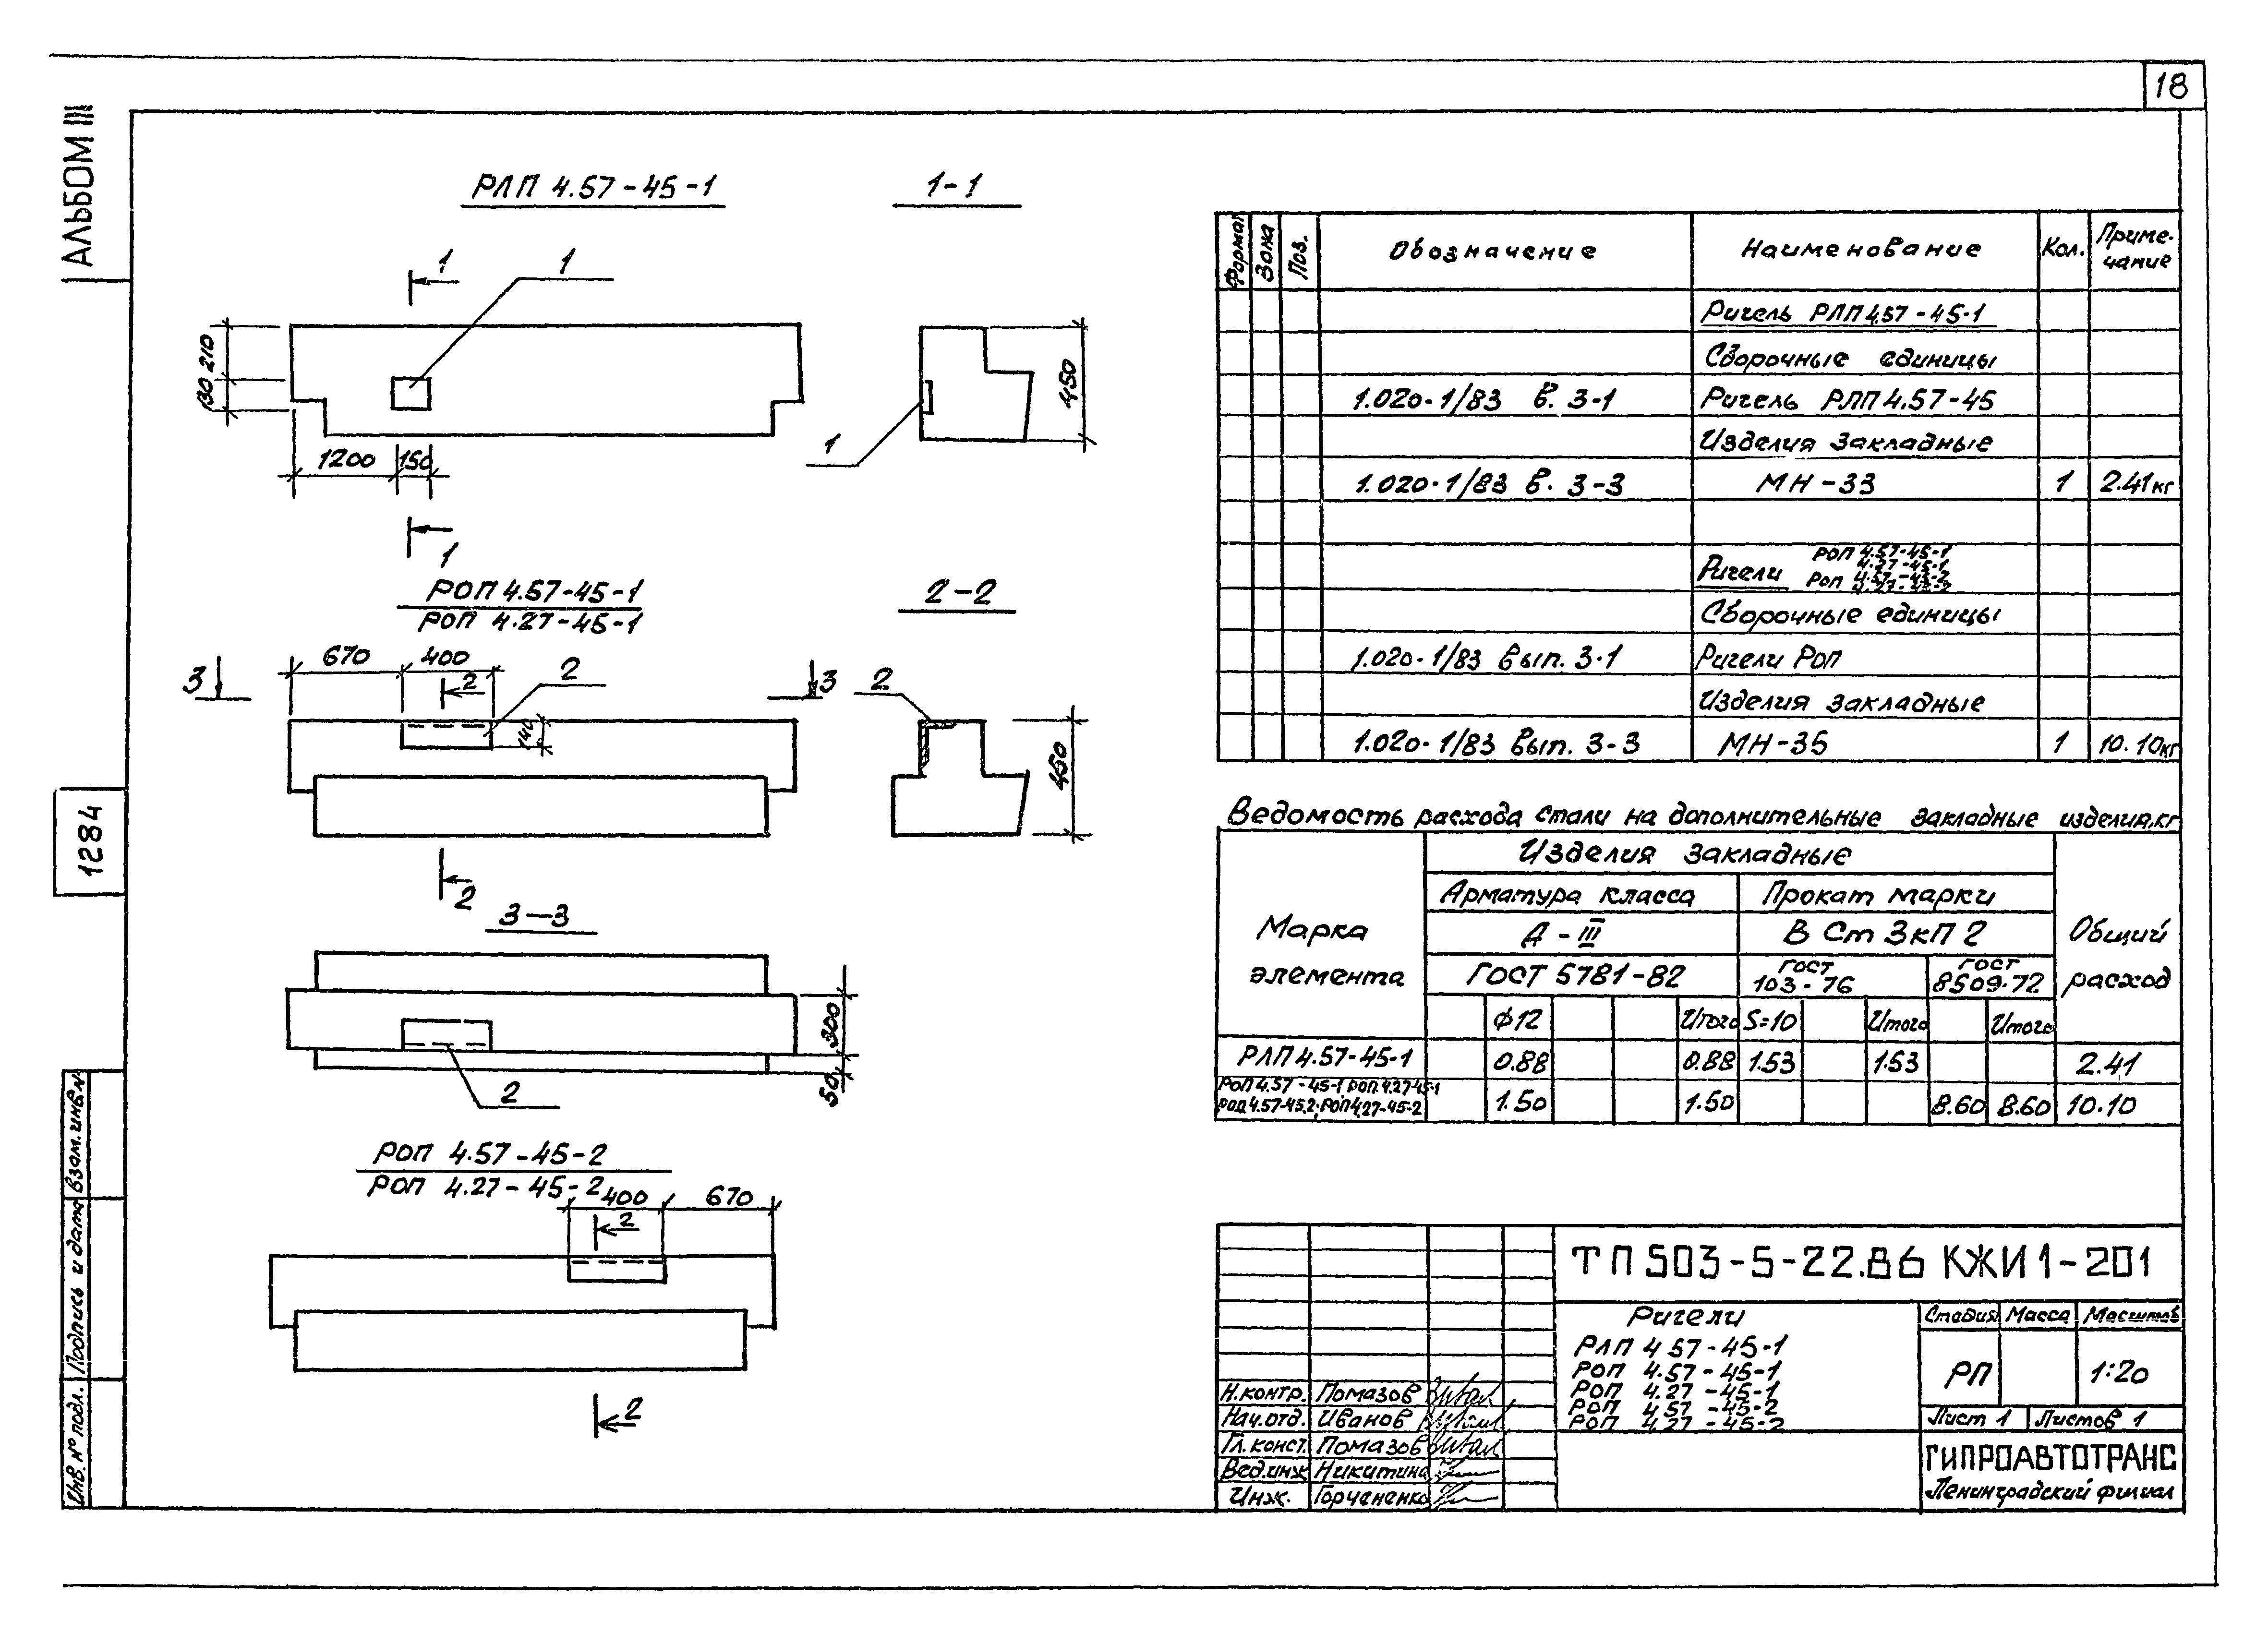 18
АЛЬБОМ III
РЛП 4.57-45-1
1-1
1
1
210
130
1200
150
450
1
1
РОП 4.57-45-1
РОП 4.27-45-1
2-2
670
400
2
2
3
3
140
2
450
2
3-3
300
50
2
РОП 4.57-45-2
РОП 4.27-45-2
400
670
2
2
1284
Взам. инв. №
Подпись и дата
Инв. № подл.
Формат
Зона
Поз.
Обозначение
Наименование
Кол.
Приме-
чание
Ригель РЛП 4.57-45-1
Сборочные единицы
1.020-1/83 в. 3-1 Ригель РЛП 4.57-45
Изделия закладные
1.020-1/83 в. 3-3 МН-33 1 2.41кг
Ригели РОП 4.57-45-1
4.27-45-1
РОП 4.57-45-2
4.27-45-2
Сборочные единицы
1.020-1/83 вып. 3-1 Ригели РОП
Изделия закладные
1.020-1/83 вып. 3-3 МН-35 1 10.10кг
Ведомость расхода стали на дополнительные закладные изделия, кг
Марка
элемента
Изделия закладные
Общий
расход
Арматура класса
Прокат марки
А-III
ВСт3кп2
ГОСТ 5781-82
ГОСТ
103-76
ГОСТ
8509-72
φ12 Итого S=10 Итого Итого
РЛП 4.57-45-1 0.88 0.88 1.53 1.53 2.41
РОП 4.57-45-1, РОП 4.27-45-1
РОП 4.57-45-2; РОП 4.27-45-2
1.50 1.50 8.60 8.60 10.10
ТП 503-5-22.86 КЖИ1-201
Ригели
РЛП 4 57-45-1
РОП 4.57-45-1
РОП 4.27-45-1
РОП 4.57-45-2
РОП 4.27-45-2
Стадия Масса Масштаб
РП 1:20
Лист 1 Листов 1
ГИПРОАВТОТРАНС
Ленинградский филиал
Н.контр. Помазов
Нач.отд. Иванов
Гл.конст. Помазов
Вед.инж Никитина
Инж. Горчененко